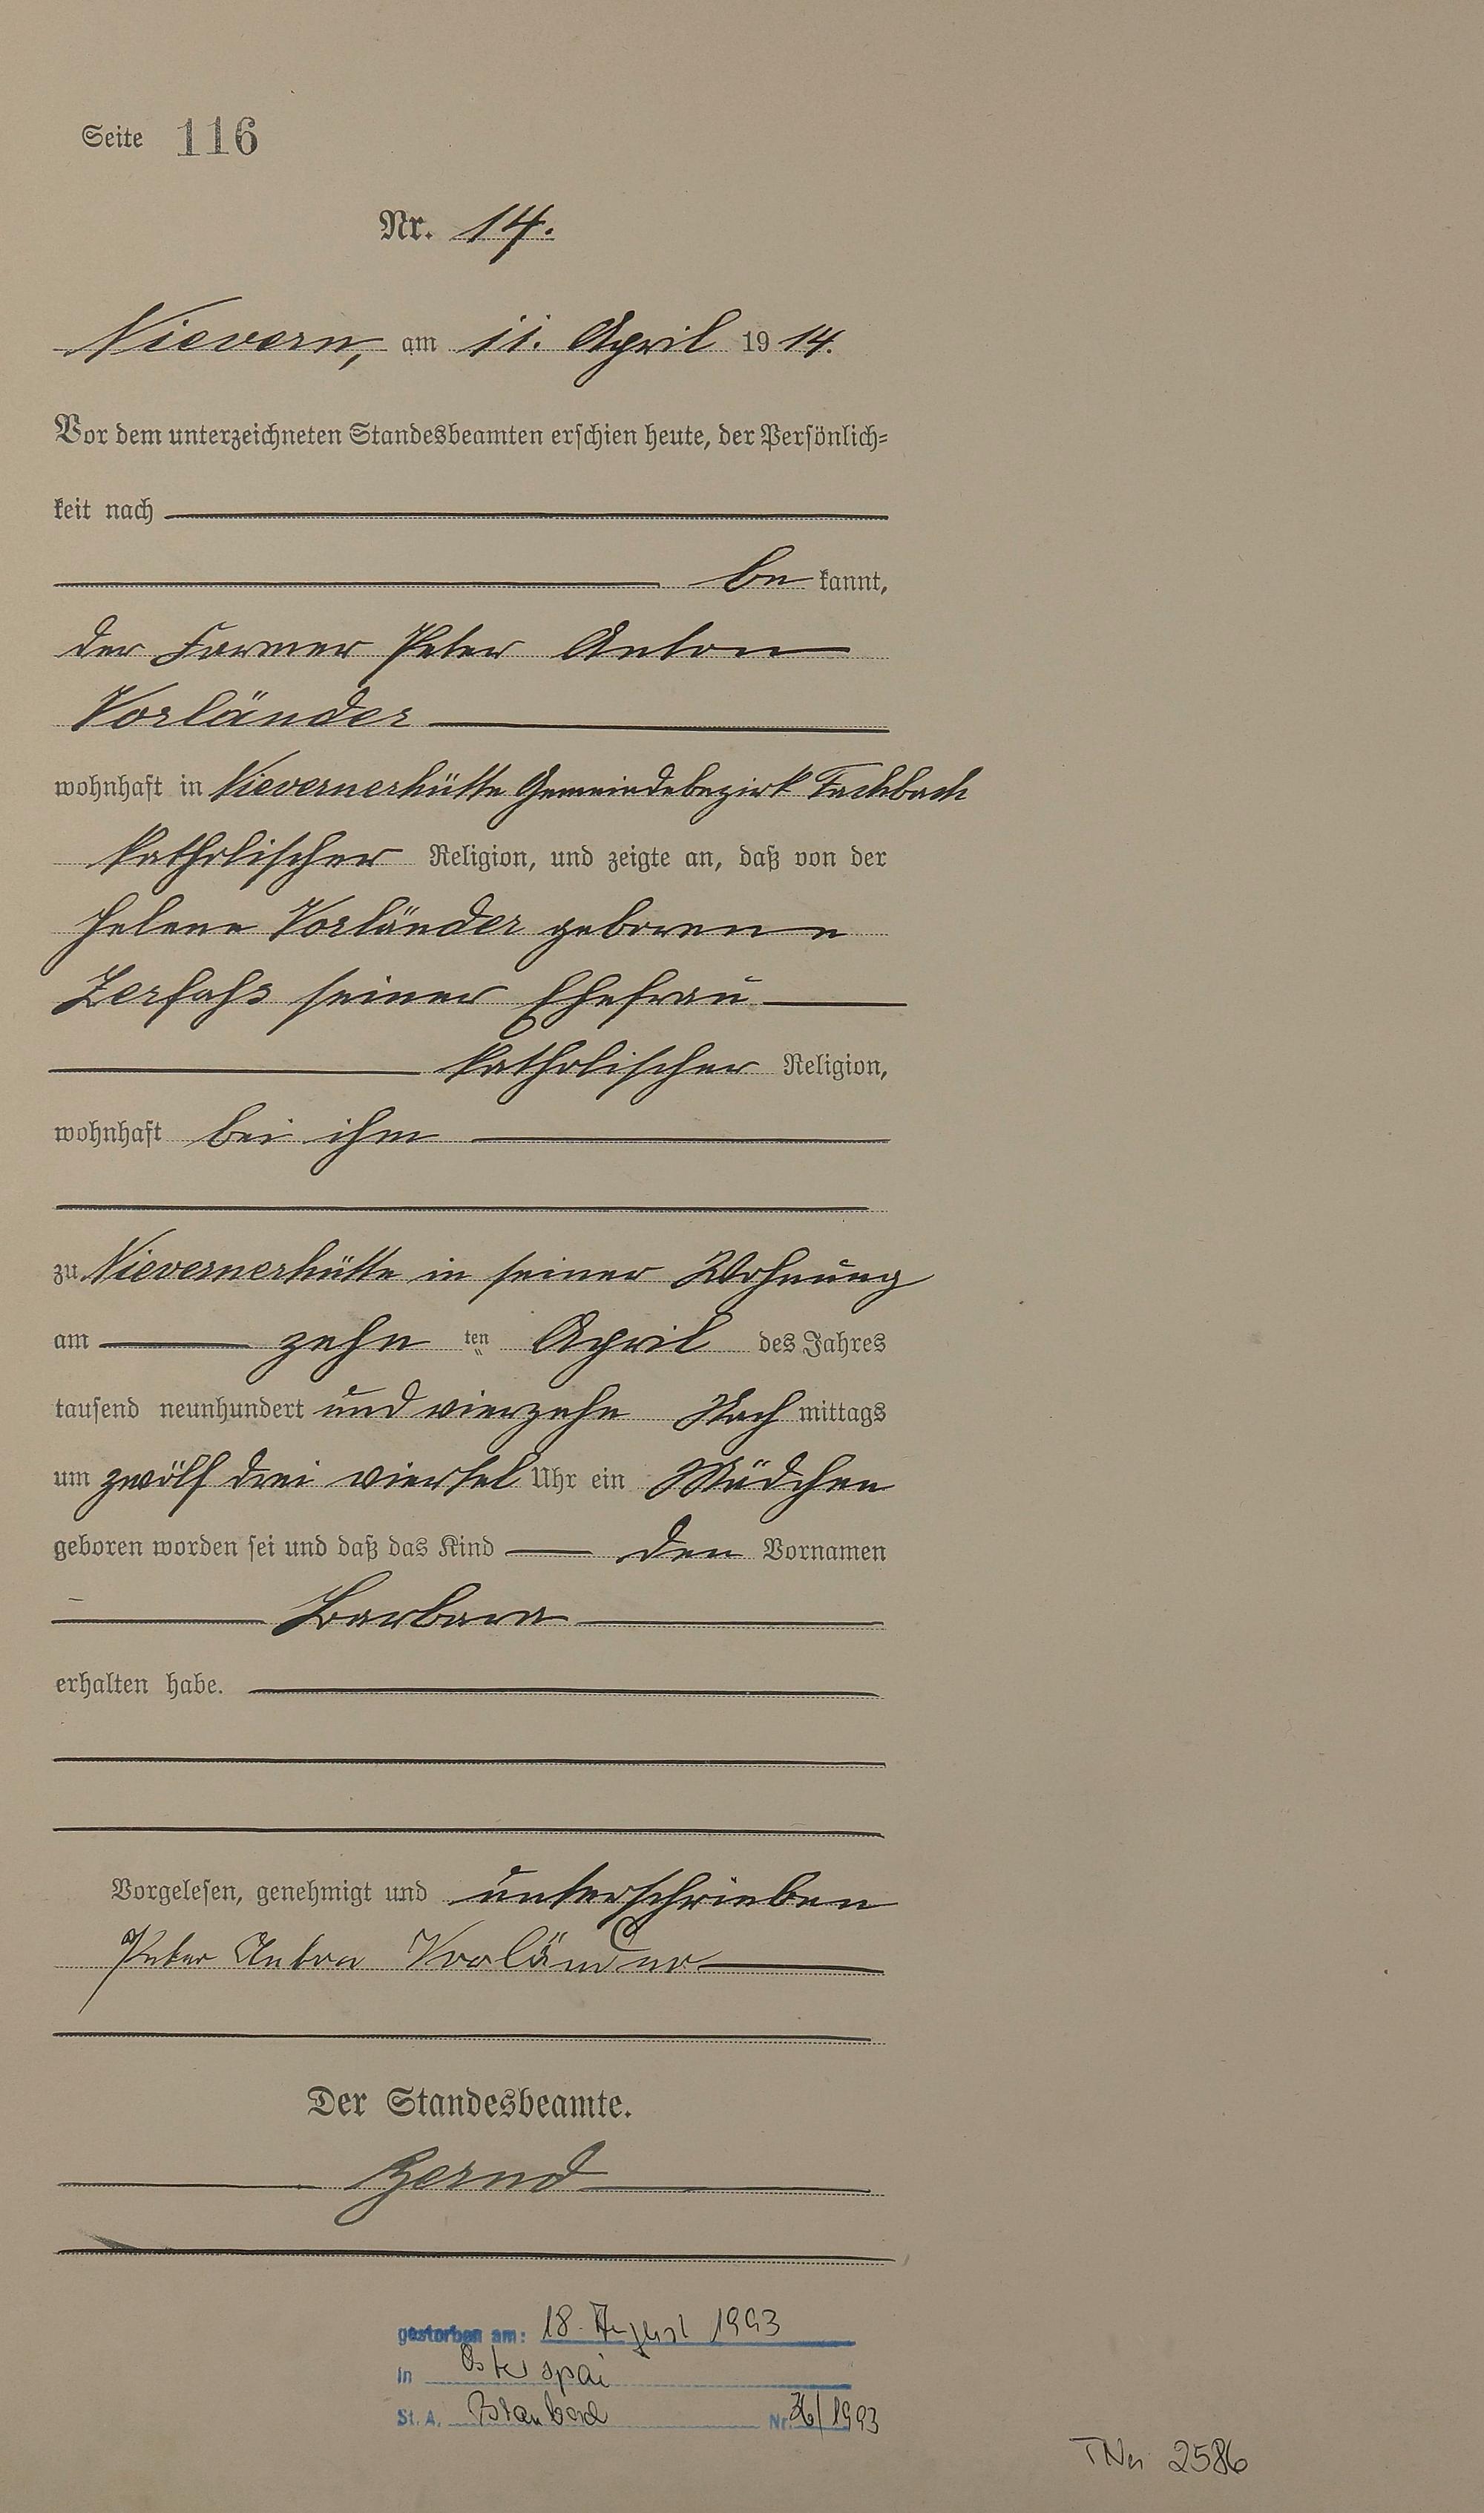 Seite 116
Nr. 14.
Nievern, am 11. April 1914.
Vor dem unterzeichneten Standesbeamten erschien heute, der Persönlich-
keit nach
be kannt,
der Former Peter Anton
Vorländer
wohnhaft in Nievernerhütte Gemeindebezirk Fachbach
katholischer Religion, und zeigte an, daß von der
Helene Vorländer geborenen
Zerfaß seiner Ehefrau
katholischer Religion,
wohnhaft bei ihm
zu Nievernerhütte in seiner Wohnung
am zehn ten April des Jahres
tausend neunhundert und vierzehn Nach mittags
um zwölf drei viertel Uhr ein Mädchen
geboren worden sei und daß das Kind den Vornamen
Barbara
erhalten habe.
Vorgelesen, genehmigt und unterschrieben
Peter Anton Vorländer
Der Standesbeamte.
gestorben am: 18. August 1993
in Osterspai
St. A. Braubach Nr. /1993
TNr 2586